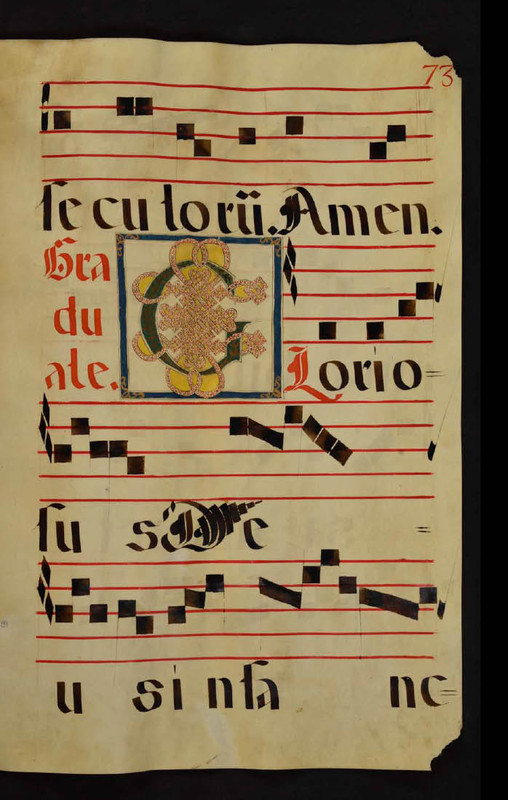 73
se cu lo rũ. Amen.
Gra
du
ale.
G Lorio=
su s De =
u s in sã nc=